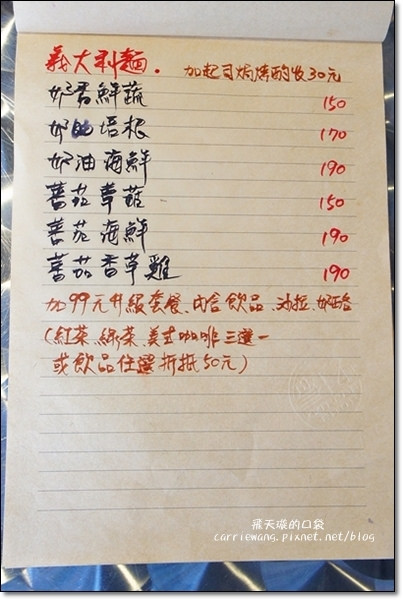 義大利麵. 加起司焗烤酌收30元
奶香鮮蔬 150
奶油培根 170
奶油海鮮 190
蕃茄草菇 150
蕃茄海鮮 190
蕃茄香草雞 190
加99元升級套餐、內含飲品、沙拉、奶酪
(紅茶、綠茶、美式咖啡三選一
或飲品任選折抵50元)
飛天璇的口袋
carriewang.pixnet.net/blog